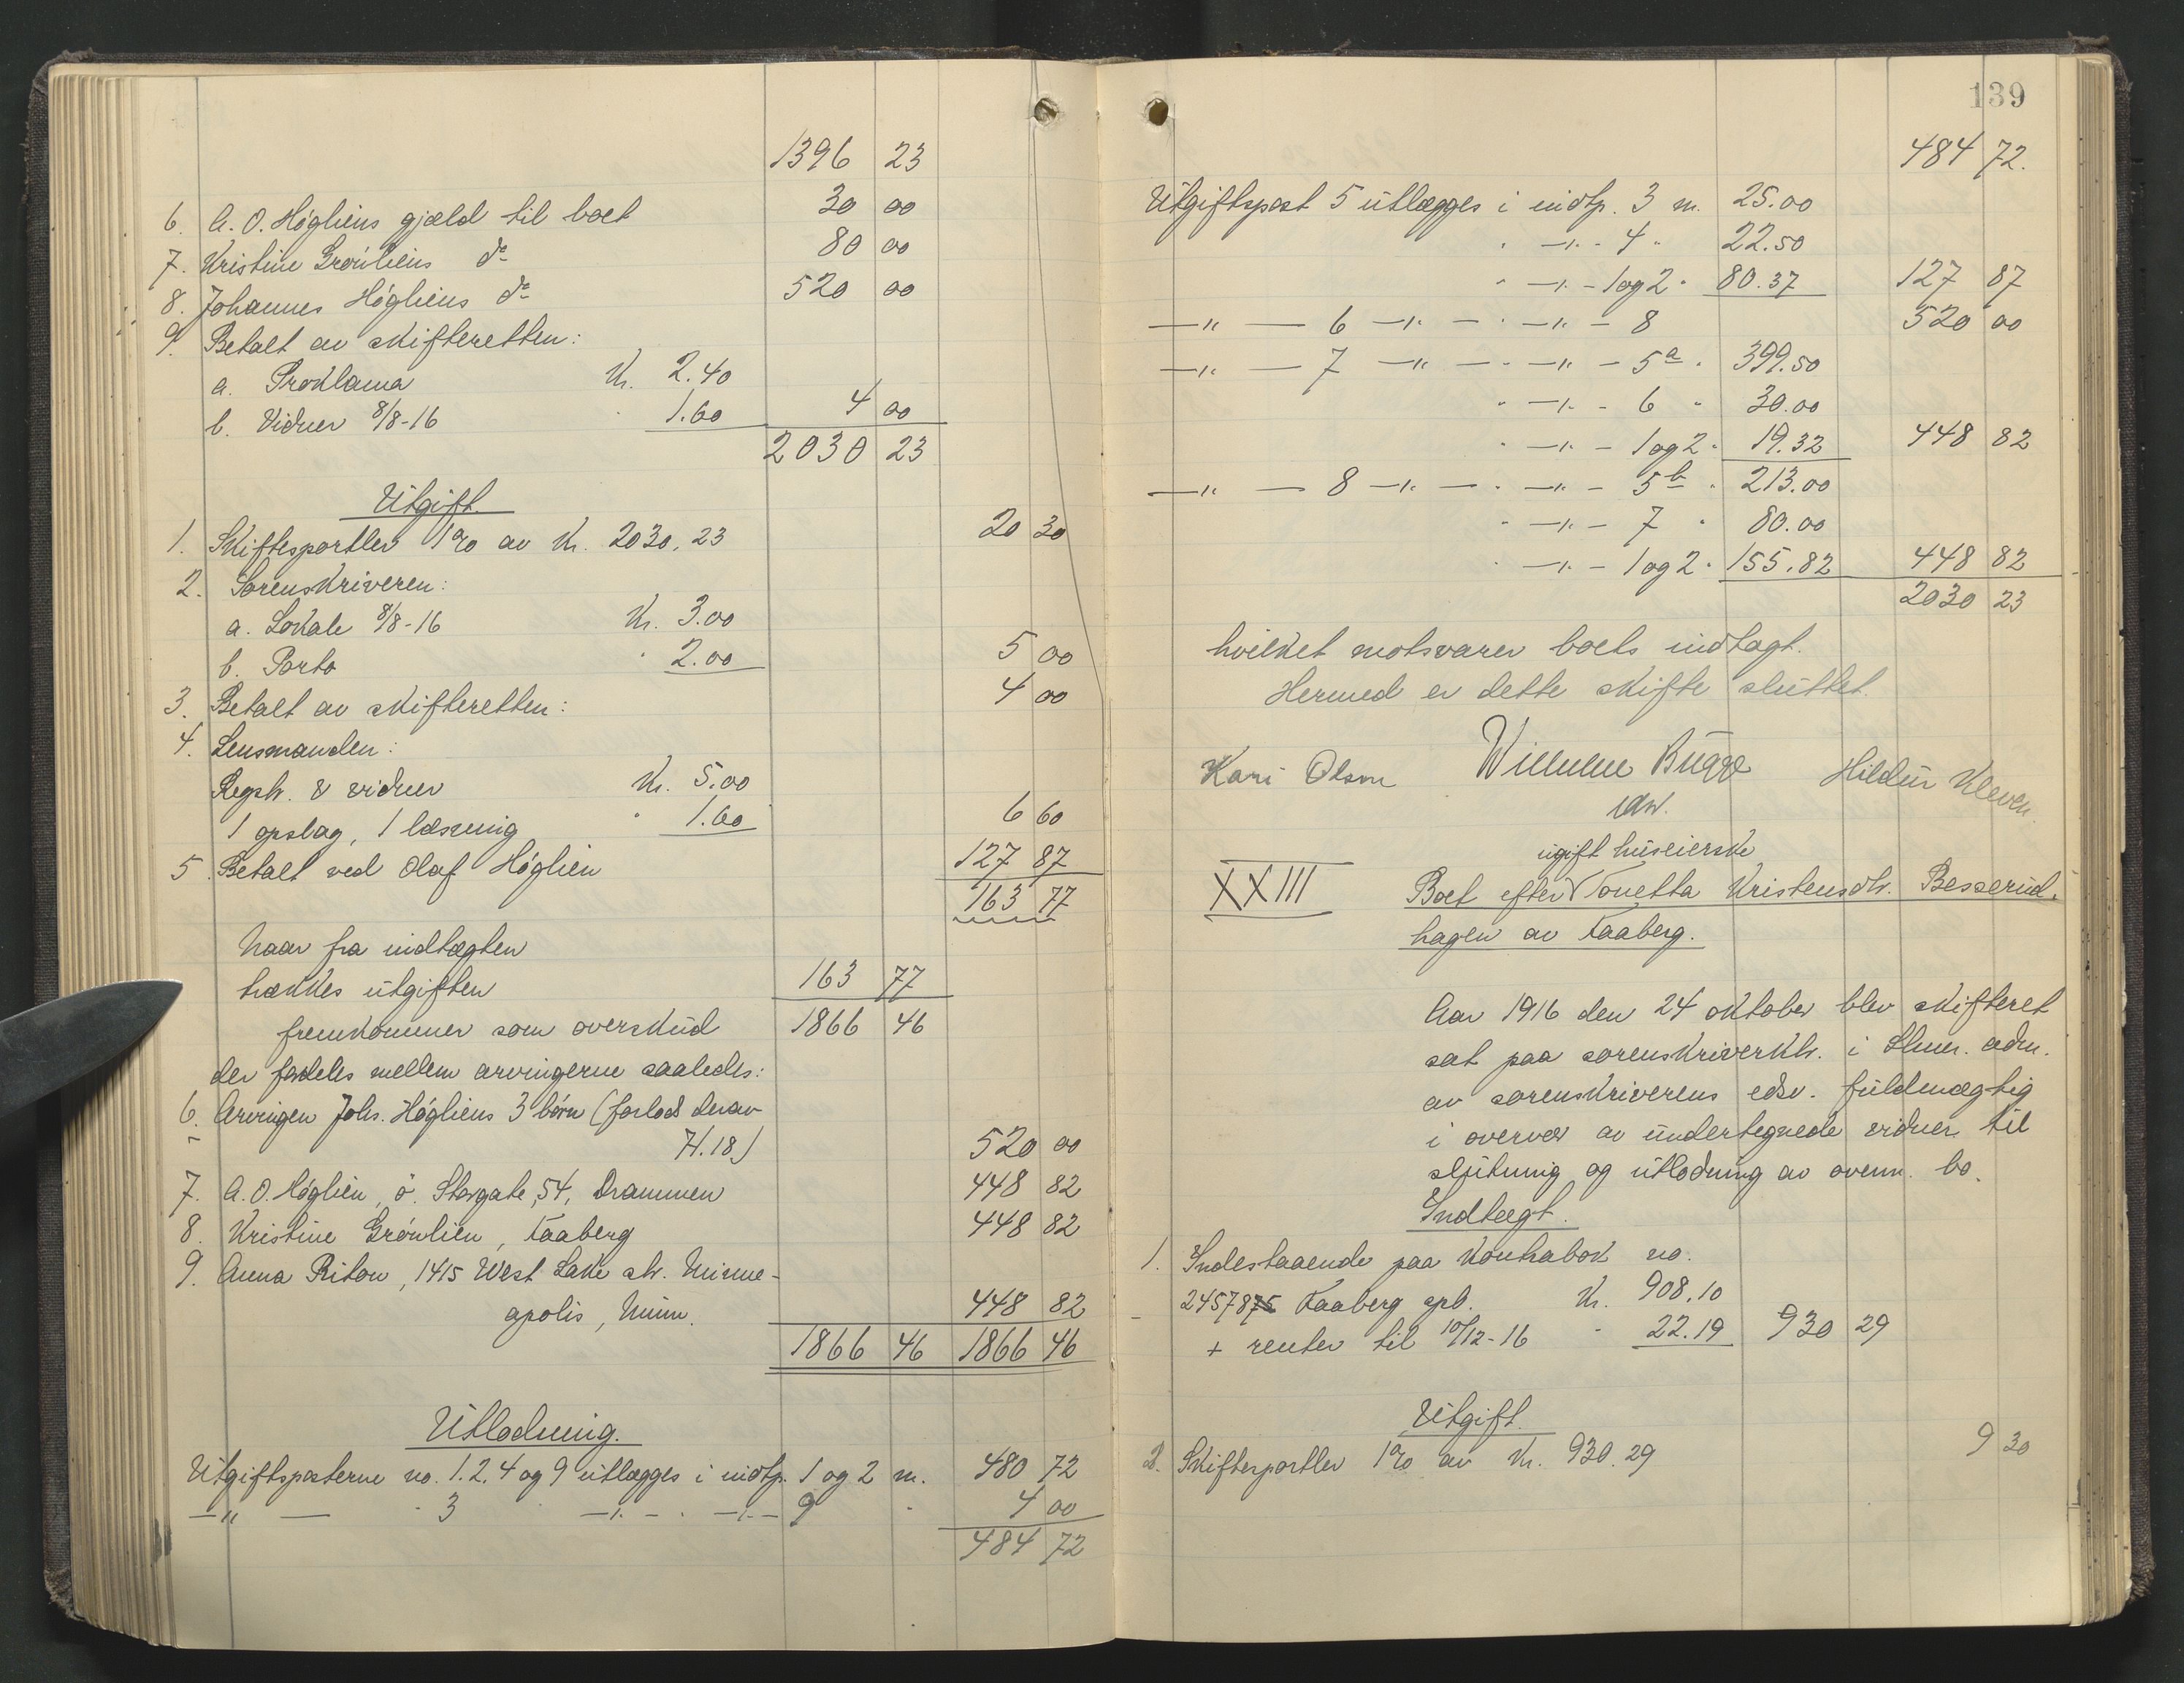 1396 23
6. A. O. Høgliens gjæld til boet 30 00
7. Kristine Grønliens do 80 00
8. Johannes Høgliens do 520 00
9. Betalt av skifteretten:
a. Proklama Kr. 2.40
b. Vidner 8/8-16 " 1.60 4 00
2030 23
Utgift
1. Skiftesportler 1% av Kr. 2030,23 20 30
2. Sorenskriveren:
a. Lokale 8/8-16 Kr. 3.00
b. Porto " 2.00 5 00
3. Betalt av skifteretten: 4 00
4. Lensmanden:
Regstr. & vidner Kr. 5.00
1 opslag, 1 læsning " 1.60 6 60
5. Betalt ved Olaf Høglien 127 87
163 77
Naar fra indtægten
trækkes utgiften 163 77
fremkommer som overskud 1866 46
der fordeles mellem arvingerne saaledes:
6. Arvingen Johs. Høgliens 3 børn (forlods derav
H. 18) 520 00
7. A. O. Høglien, ø. Storgate, 54, Drammen 448 82
8. Kristine Grønlien, Faaberg 448 82
9. Anna Riton, 1415 West Lake str. Minne-
apolis, Minn. 448 82
1866 46 1866 46
Utlodning.
Utgiftsposterne no. 1. 2. 4 og 9 utlægges i indtp. 1 og 2 m. 480 72
—"— " 3 —"— " —"— 9 " 4 00
484 72
139
484 72.
Utgiftspost 5 utlægges i indtp. 3 m. 25.00
" —"— 4 " 22.50
" —"— 1 og 2 " 80.37 127 87
—"— 6 —"— " —"— 8 520 00
—"— 7 —"— " —"— 5a " 399.50
" —"— 6 " 30.00
" —"— 1 og 2 " 19.32 448 82
—"— 8 —"— " —"— 5b " 213.00
" —"— 7 " 80.00
" —"— 1 og 2 " 155.82 448 82
2030 23
hvilket motsvarer boets indtægt.
Hermed er dette skifte sluttet.
Kari Olsen Wilhelm Bugge Hildur Kleven
edsv.
ugift huseierske
XXIII Boet efter Tonetta Kristensdtr. Besserud-
hagen av Faaberg.
Aar 1916 den 24 oktober blev skifteret
sat paa sorenskriverktr. i Lhmr. adm.
av sorenskriverens edsv. fuldmægtig
i overvær av undertegnede vidner til
slutning og utlodning av ovenn. bo.
Indtægt.
1. Indestaaende paa Kontrabok no.
2457875 Faaberg spb. Kr. 908.10
+ renter til 10/12-16 " 22.19 930 29
Utgift.
2. Skiftesportler 1% av Kr. 930.29 9 30